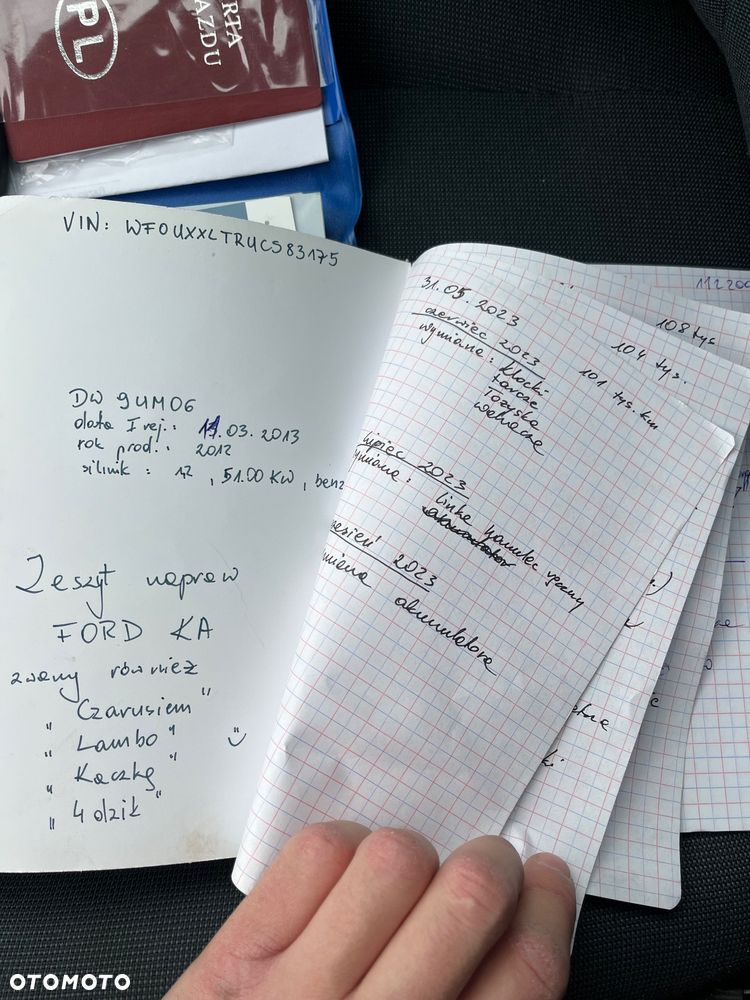 PL
KARTA
POJAZDU
VIN: WF0UXXLTRUCS83175
DW 9UM06
data I rej.: 11.03.2013
rok prod.: 2012
silnik : 1,2 , 51.00 KW, benz
Zeszyt napraw
FORD KA
zwany również
"Czarusiem"
"Lambo"
"Kaczką"
"4 dzik"
31.05.2023
czerwiec 2023 101 tys. km
wymiana: klocki
tarcze
łożyska
wahacze
lipiec 2023
wymiana: linka hamulec ręczny
wrzesień 2023
wymiana akumulatora
104 tys.
108 tys
112200
OTOMOTO